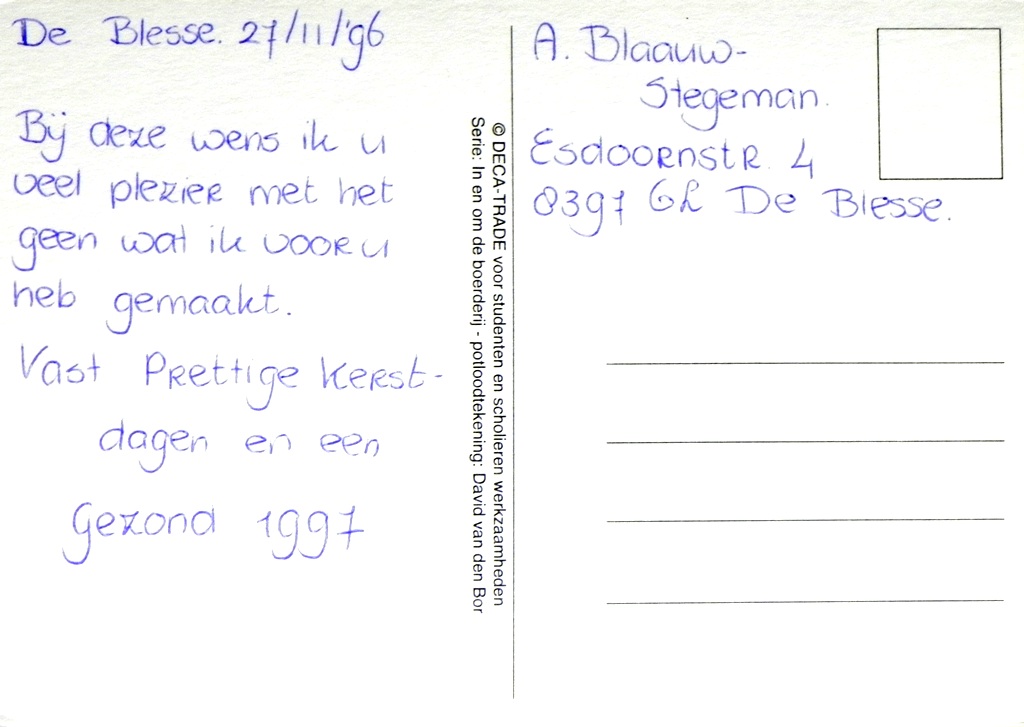 De Blesse. 27/11/'96
Bij deze wens ik u
veel plezier met het
geen wat ik voor u
heb gemaakt.
Vast Prettige Kerst-
dagen en een
Gezond 1997
© DECA-TRADE voor studenten en scholieren werkzaamheden
Serie: In en om de boerderij - potloodtekening: David van den Bor
A. Blaauw-
Stegeman.
Esdoornstr. 4
8397 GL De Blesse.